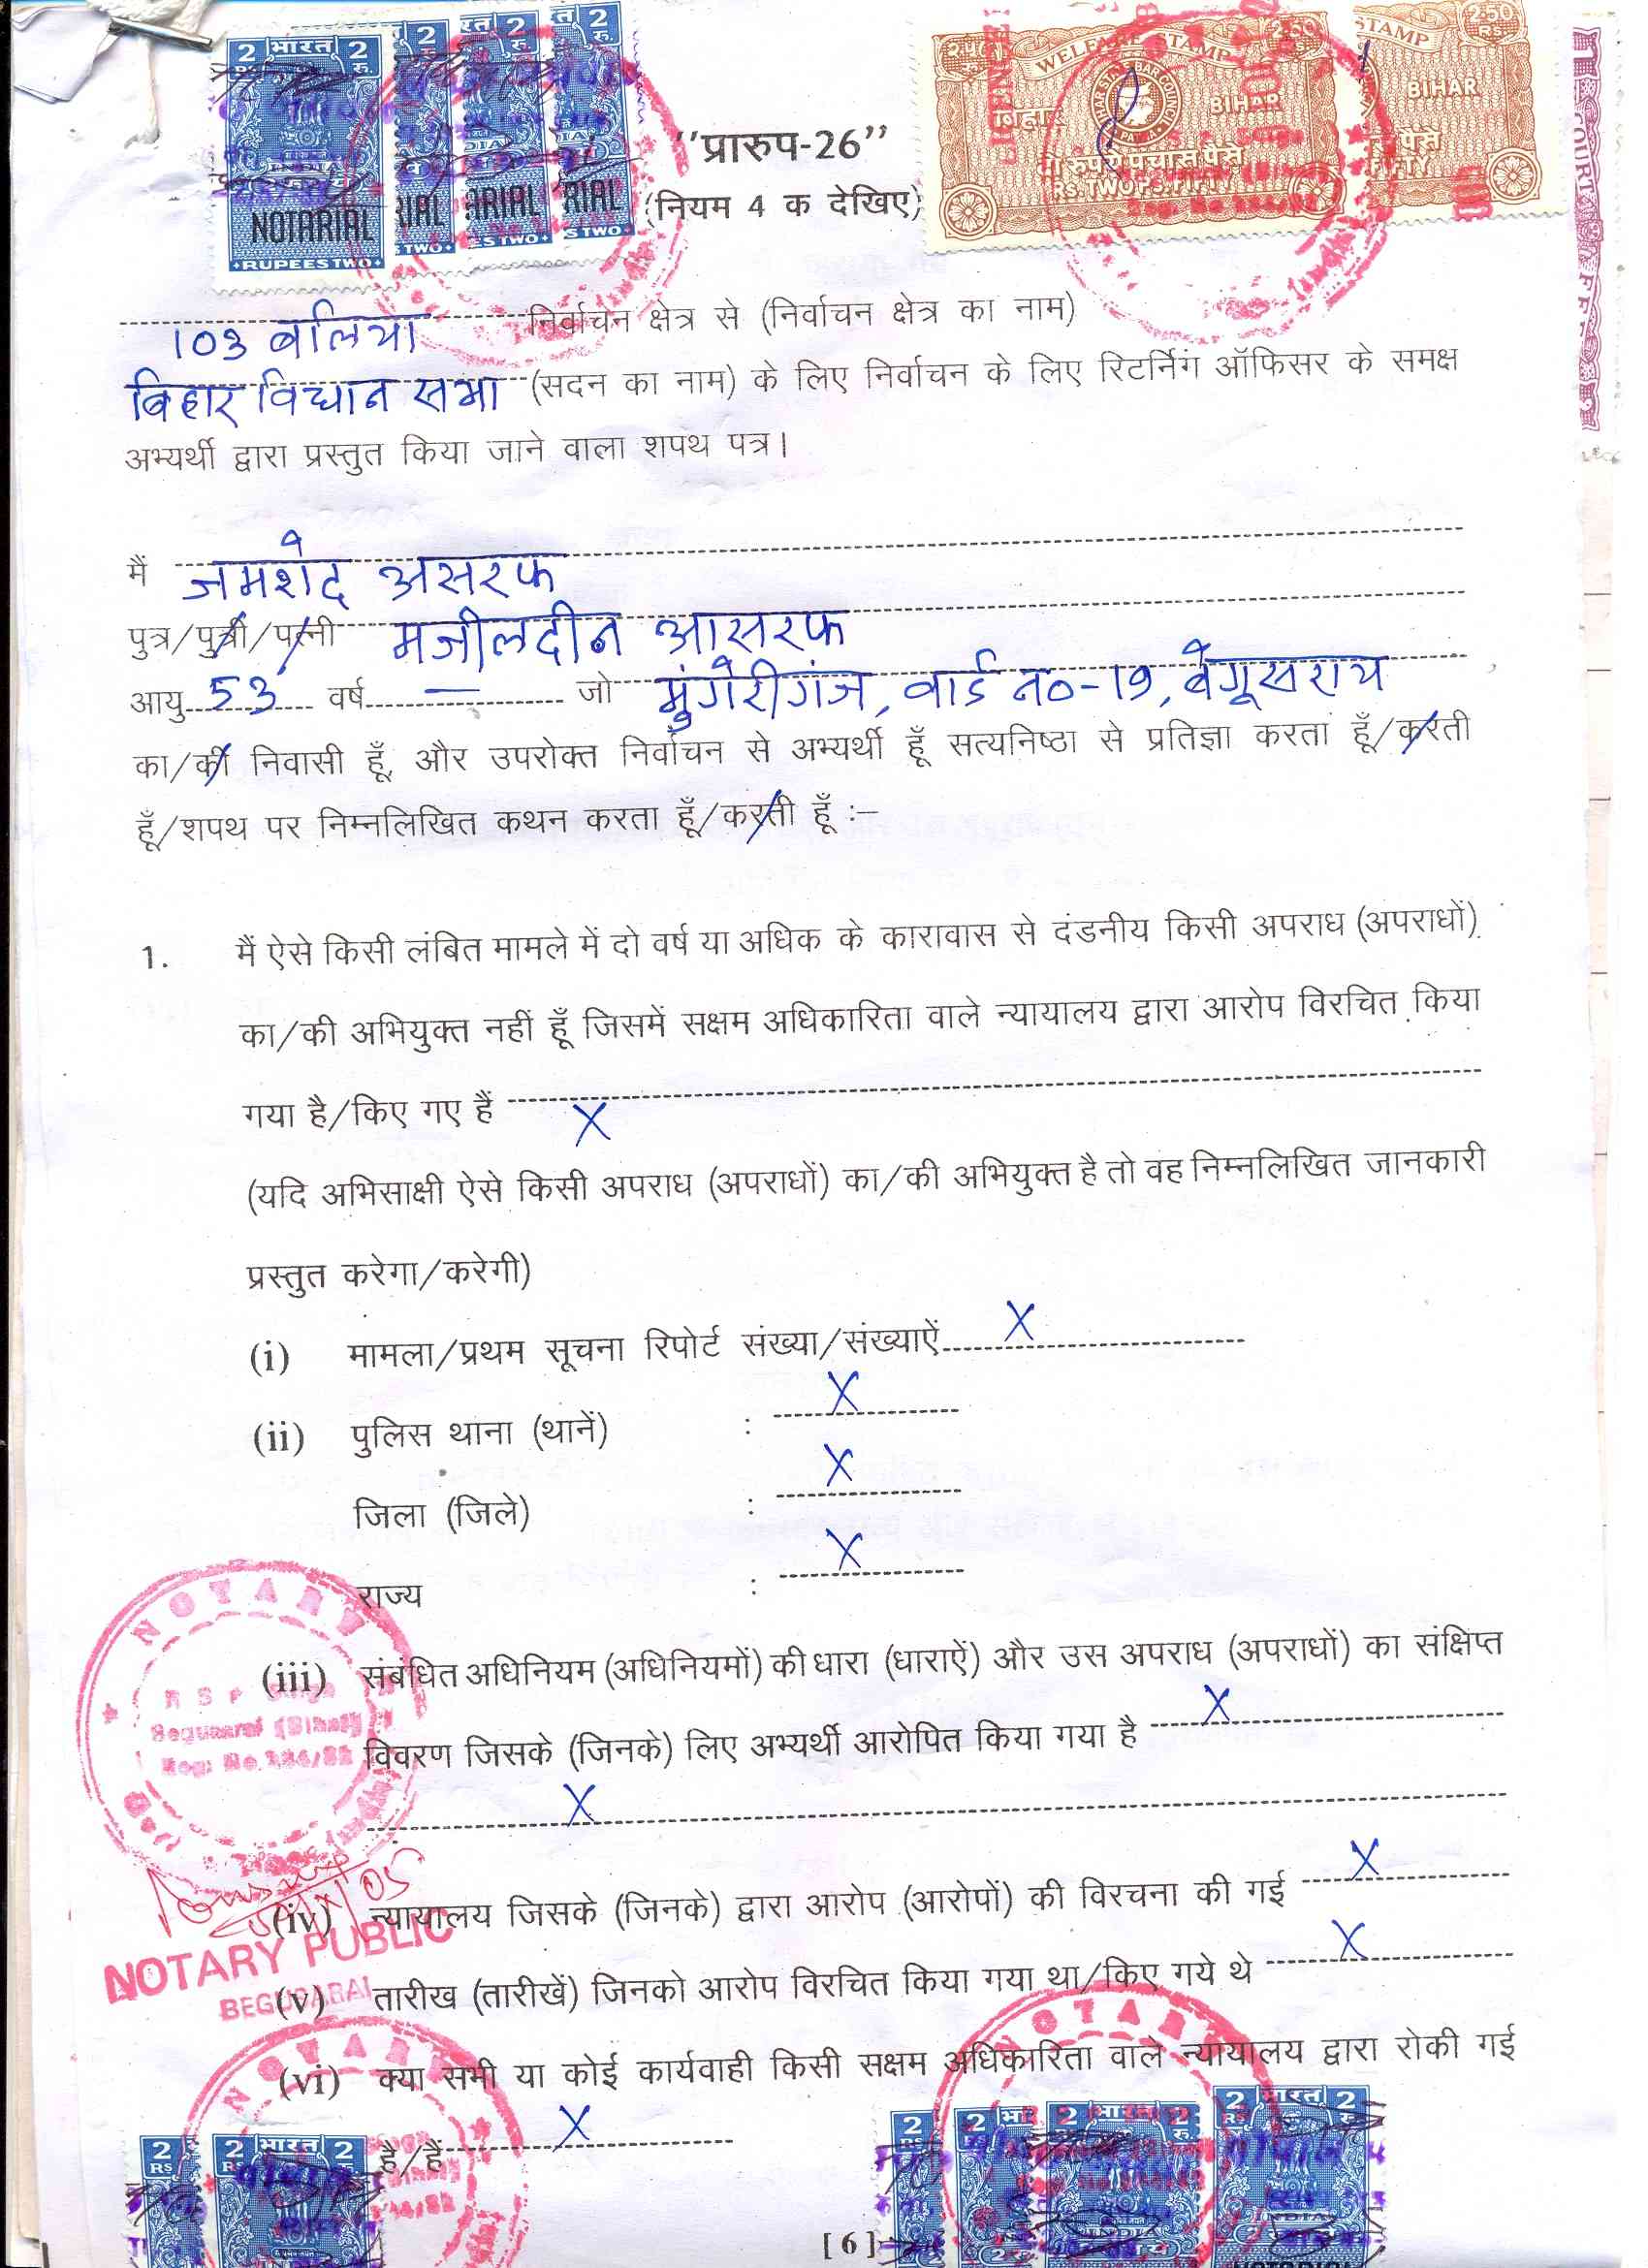 2 भारत 2
RS रु.
NOTARIAL
RUPEES TWO
WELFARE STAMP
2.50
BIHAR
बिहार
RS. TWO P. FIFTY
"प्रारुप-26"
(नियम 4 क देखिए)
103 बलिया निर्वाचन क्षेत्र से (निर्वाचन क्षेत्र का नाम)
बिहार विधान सभा (सदन का नाम) के लिए निर्वाचन के लिए रिटर्निंग ऑफिसर के समक्ष
अभ्यर्थी द्वारा प्रस्तुत किया जाने वाला शपथ पत्र।
मैं जमशेद असरफ
पुत्र/पुत्री/पत्नी मजीलदीन आसरफ
आयु 53 वर्ष — जो मुंगेरीगंज, वार्ड न०-19, बेगूसराय
का/की निवासी हूँ, और उपरोक्त निर्वाचन से अभ्यर्थी हूँ सत्यनिष्ठा से प्रतिज्ञा करता हूँ/करती
हूँ/शपथ पर निम्नलिखित कथन करता हूँ/करती हूँ :–
1. मैं ऐसे किसी लंबित मामले में दो वर्ष या अधिक के कारावास से दंडनीय किसी अपराध (अपराधों)
का/की अभियुक्त नहीं हूँ जिसमें सक्षम अधिकारिता वाले न्यायालय द्वारा आरोप विरचित किया
गया है/किए गए हैं X
(यदि अभिसाक्षी ऐसे किसी अपराध (अपराधों) का/की अभियुक्त है तो वह निम्नलिखित जानकारी
प्रस्तुत करेगा/करेगी)
(i) मामला/प्रथम सूचना रिपोर्ट संख्या/संख्याऐं X
(ii) पुलिस थाना (थानें) : X
जिला (जिले) : X
राज्य : X
(iii) संबंधित अधिनियम (अधिनियमों) की धारा (धाराऐं) और उस अपराध (अपराधों) का संक्षिप्त
विवरण जिसके (जिनके) लिए अभ्यर्थी आरोपित किया गया है X
X
(iv) न्यायालय जिसके (जिनके) द्वारा आरोप (आरोपों) की विरचना की गई X
(v) तारीख (तारीखें) जिनको आरोप विरचित किया गया था/किए गये थे X
(vi) क्या सभी या कोई कार्यवाही किसी सक्षम अधिकारिता वाले न्यायालय द्वारा रोकी गई
है/हैं X
NOTARY
Begusarai (Bihar)
NOTARY PUBLIC
BEGUSARAI
[ 6 ]